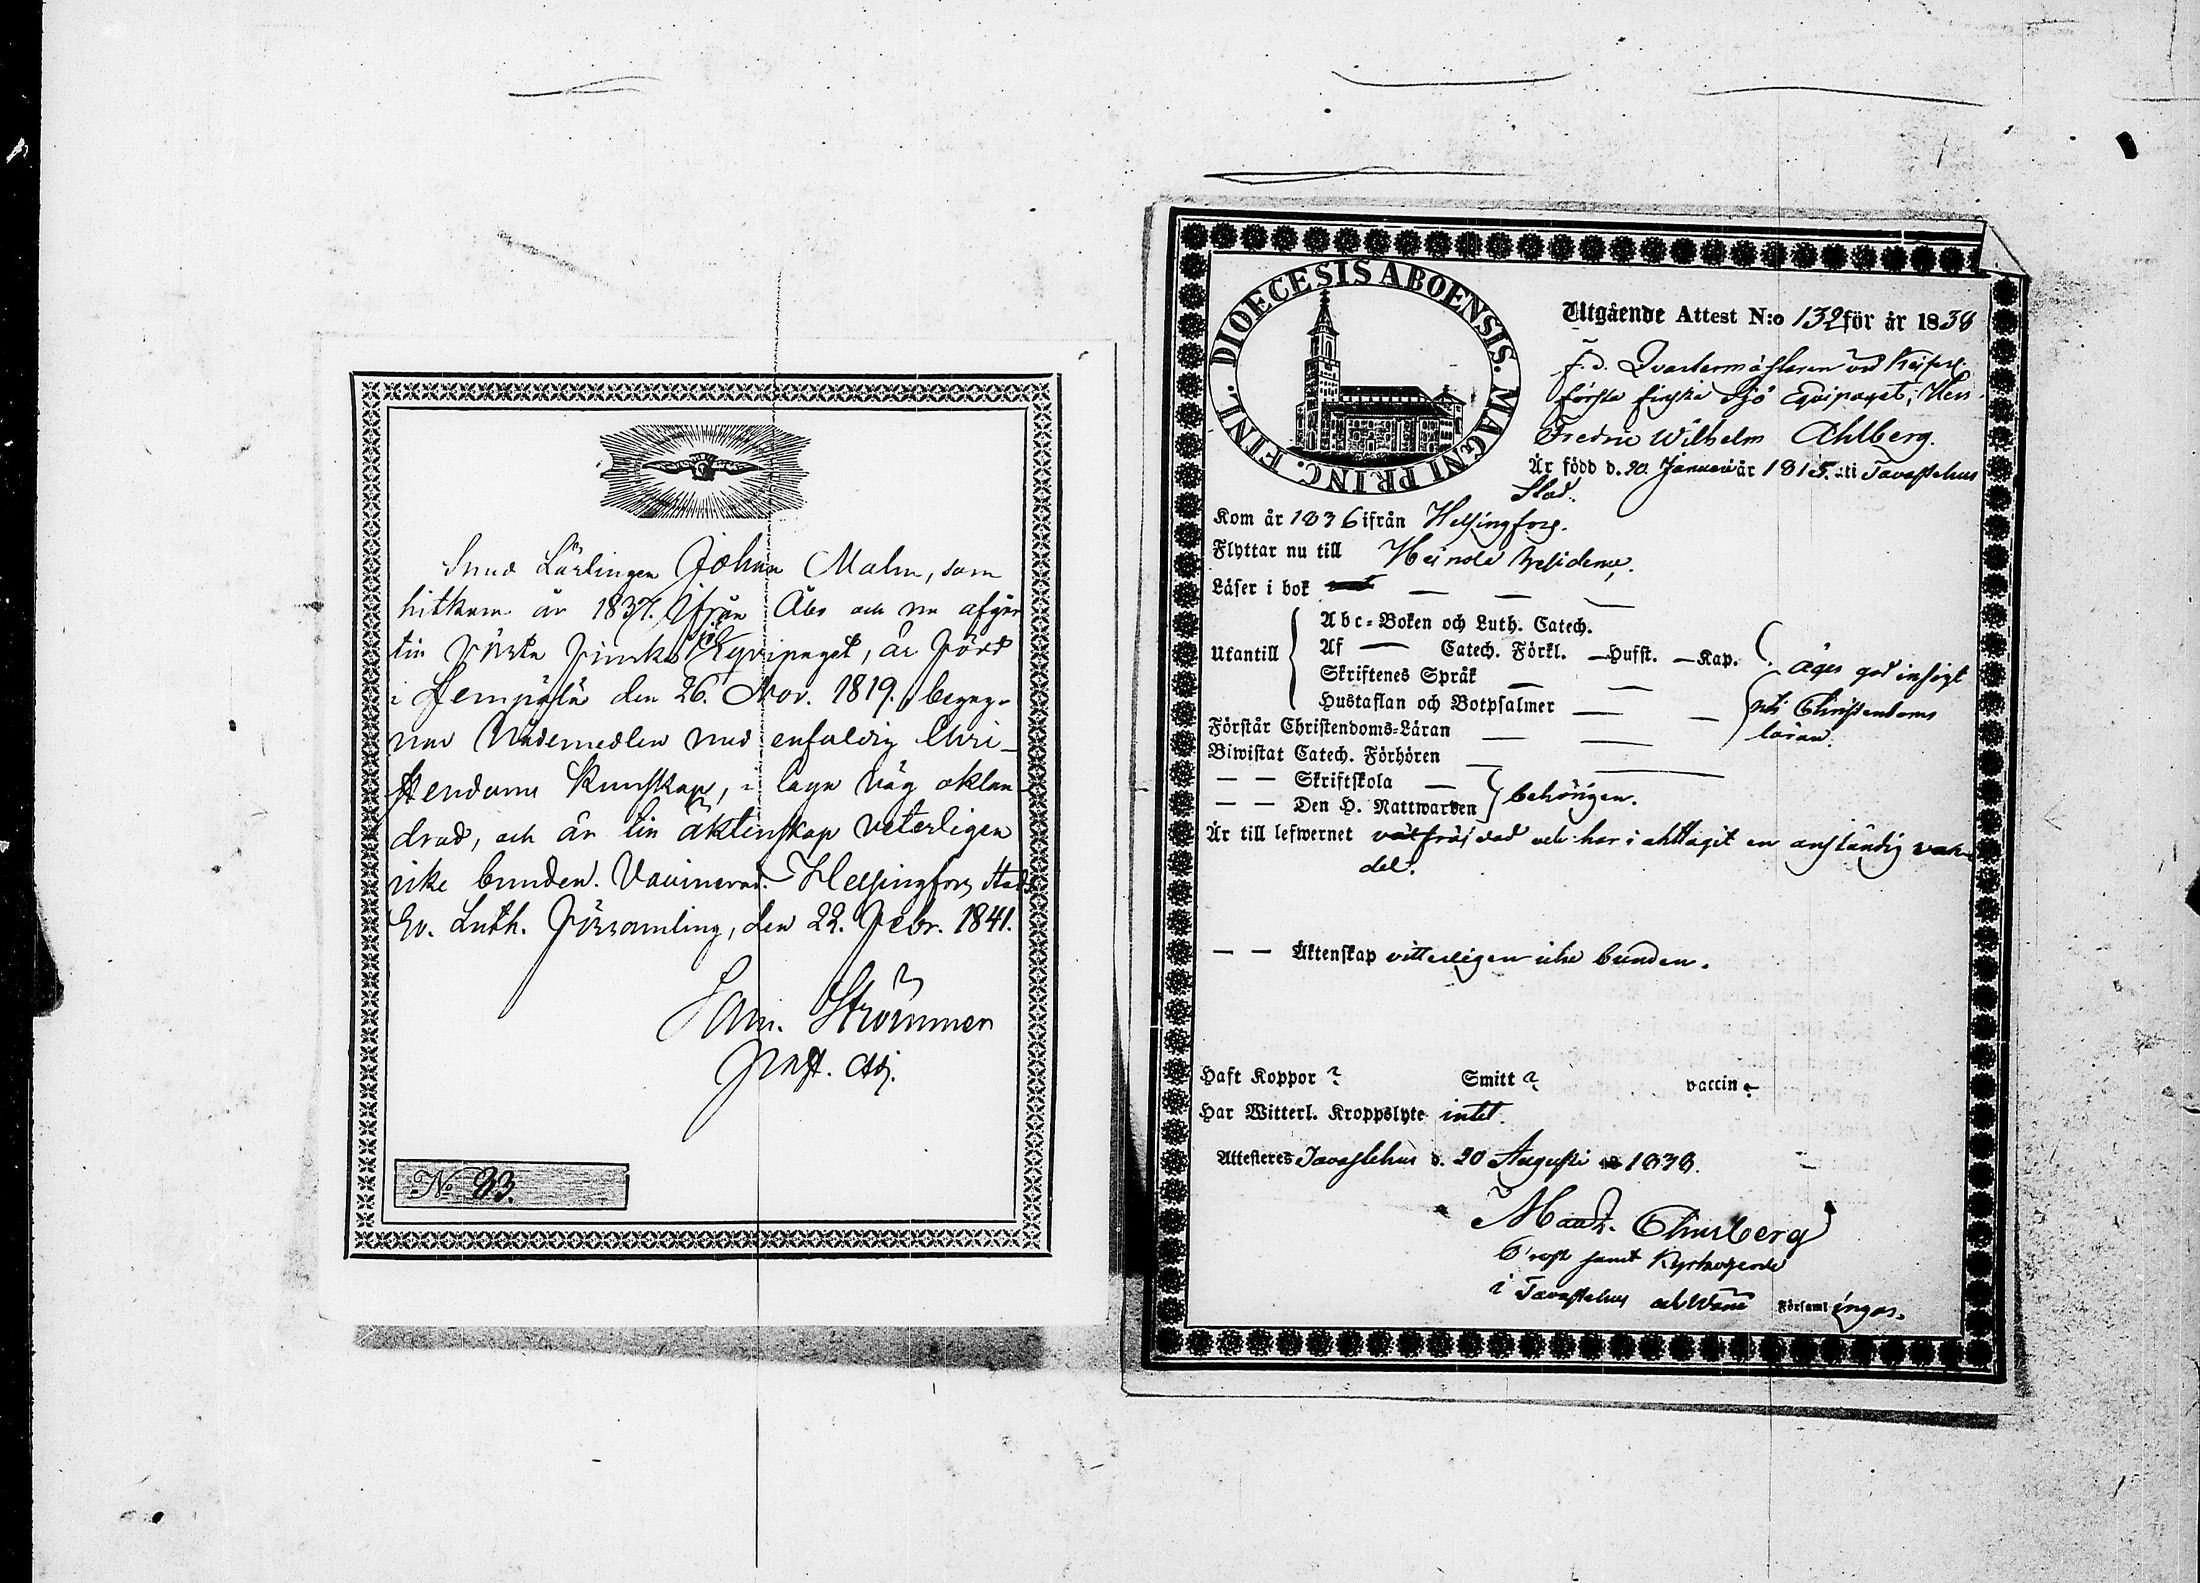 Smed Lärlingen Johan Malm, som
hitkom år 1837. ifrån Åbo och nu afgår
till Första Finska Sjö Equipaget, är född
i Lempälä den 26. Nov. 1819, begag-
nar Nådemedlen med enfaldig Chri-
stendoms Kunskap, i laga väg oklan-
drad, och är till äktenskap veterligen
icke bunden. Vaccinerad. Helsingfors Stads
Ev. Luth. Församling, den 22. Febr. 1841.
Sam. Strömmer
Past. Adj.
No 93.
DIOECESIS ABOENSIS. MAGNI PRINC. FINL.
Utgående Attest N:o 132 för år 1838
F. d. Qvartermästaren vid Keiserl.
första finska Sjö Equipaget, Herr
Fredric Wilhelm Ahlberg.
Är född d. 20 Januari år 1815. uti Tavastehus
Stad.
Kom år 1836 ifrån Helsingfors.
Flyttar nu till Heinola
Läser i bok — — —
Utantill
Abc-Boken och Luth. Catech.
Af — Catech. Förkl. — Hufst. — Kap.
Skriftenes Språk — —
Hustaflan och Botpsalmer — —
äger god insigt
uti Christendoms
läran.
Förstår Christendoms-Läran — —
Biwistat Catech. Förhören — —
— — Skriftskola —
— — Den H. Nattwarden
behörigen.
Är till lefwernet välfräjdad och har i akttagit en anständig van-
del.
— — Äktenskap vitterligen icke bunden.
Haft Koppor ? Smitt ? vaccin ?
Har Witterl. Kroppslyte intet.
Attesteres Tavastehus d. 20 Augusti 1838.
Churberg
Prost samt Kyrkoherde
i Tavastehus och Wånå Församlingar.